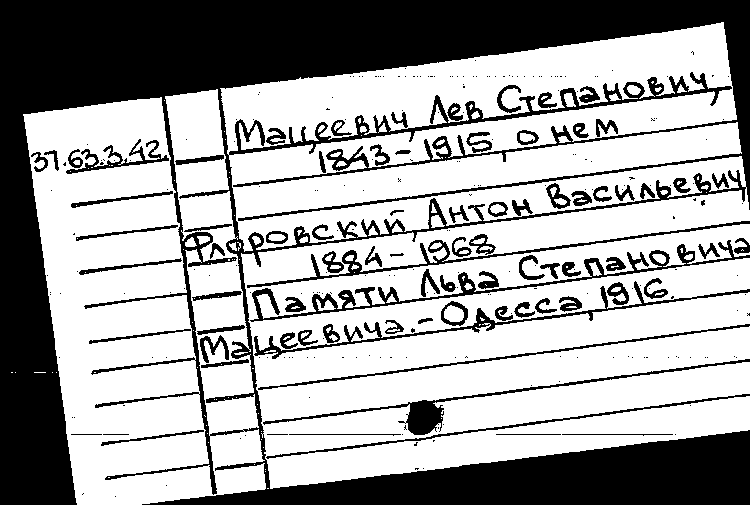 37.63.3.42. Мацеевич, Лев Степанович,
1843-1915, о нем
Флоровский, Антон Васильевич,
1884-1968
Памяти Льва Степановича
Мацеевича.-Одесса, 1916.